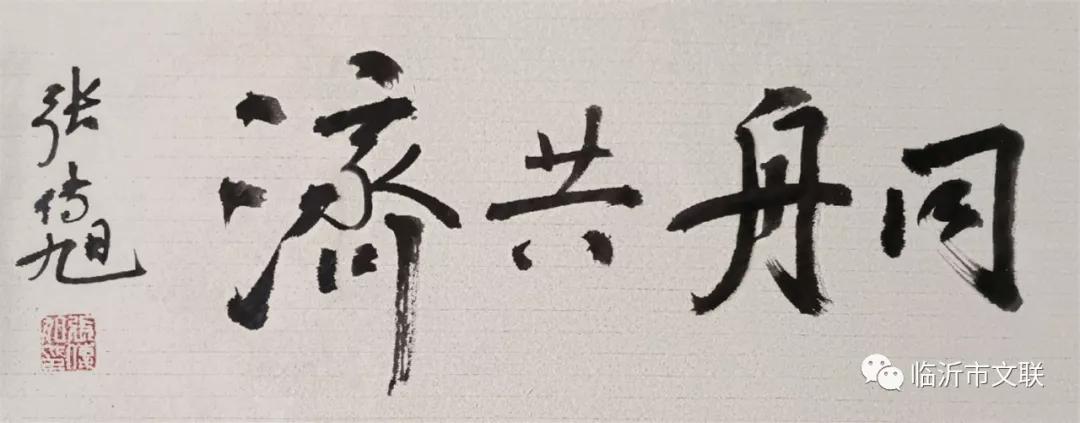 同舟共濟
张传旭
临沂市文联